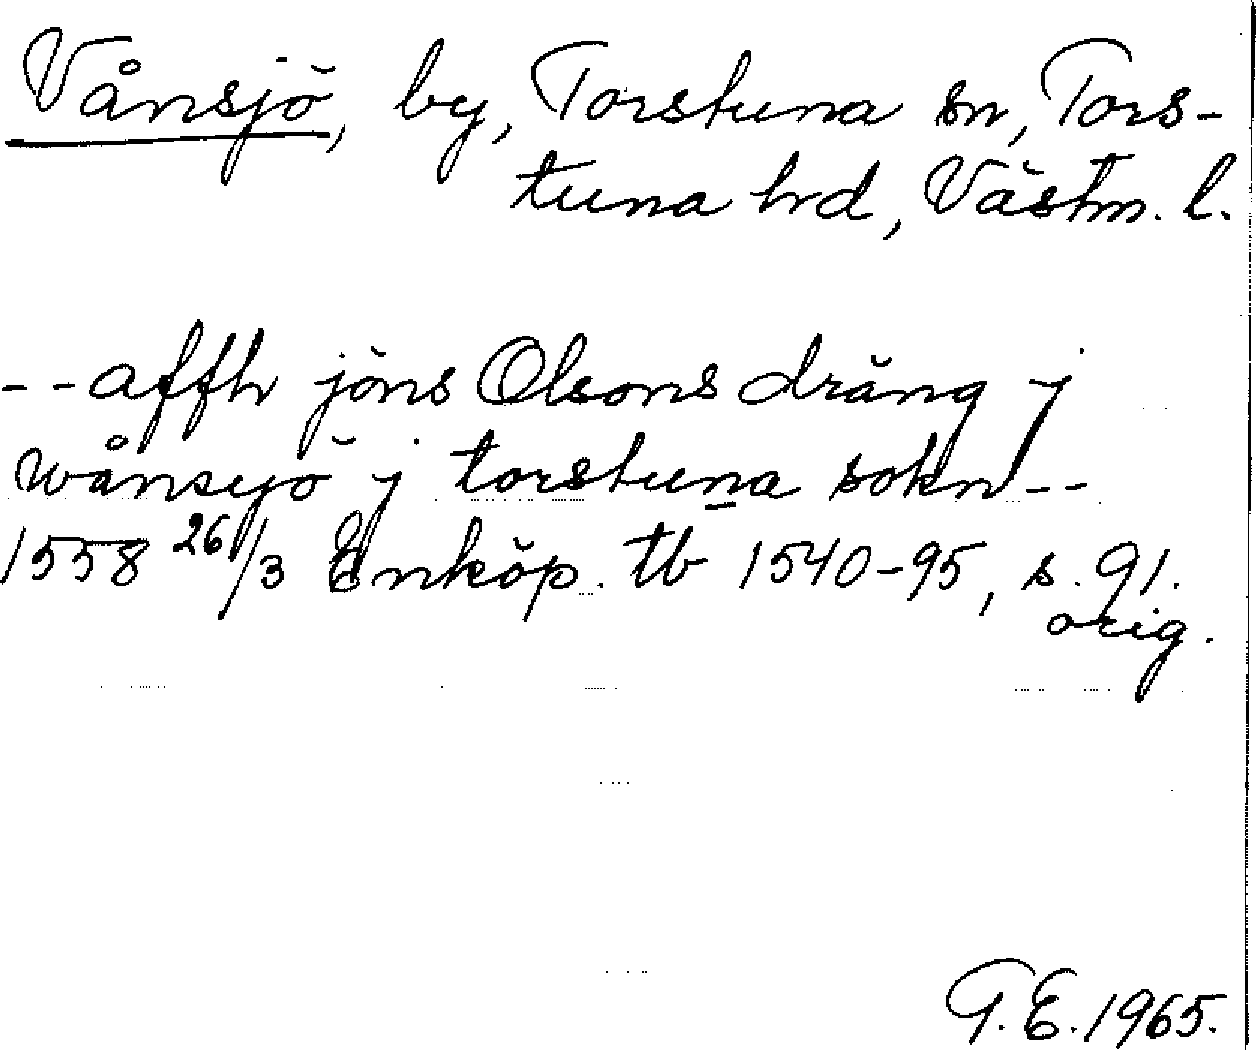 Vånsjö, by, Torstuna sn, Tors-
tuna hrd, Västm. l.
--affh jöns Olsons dräng j
wånsyö j torstuna sokn--
1558 26/3 Enköp. tb 1540-95, s. 91.
orig.
G.E. 1965.